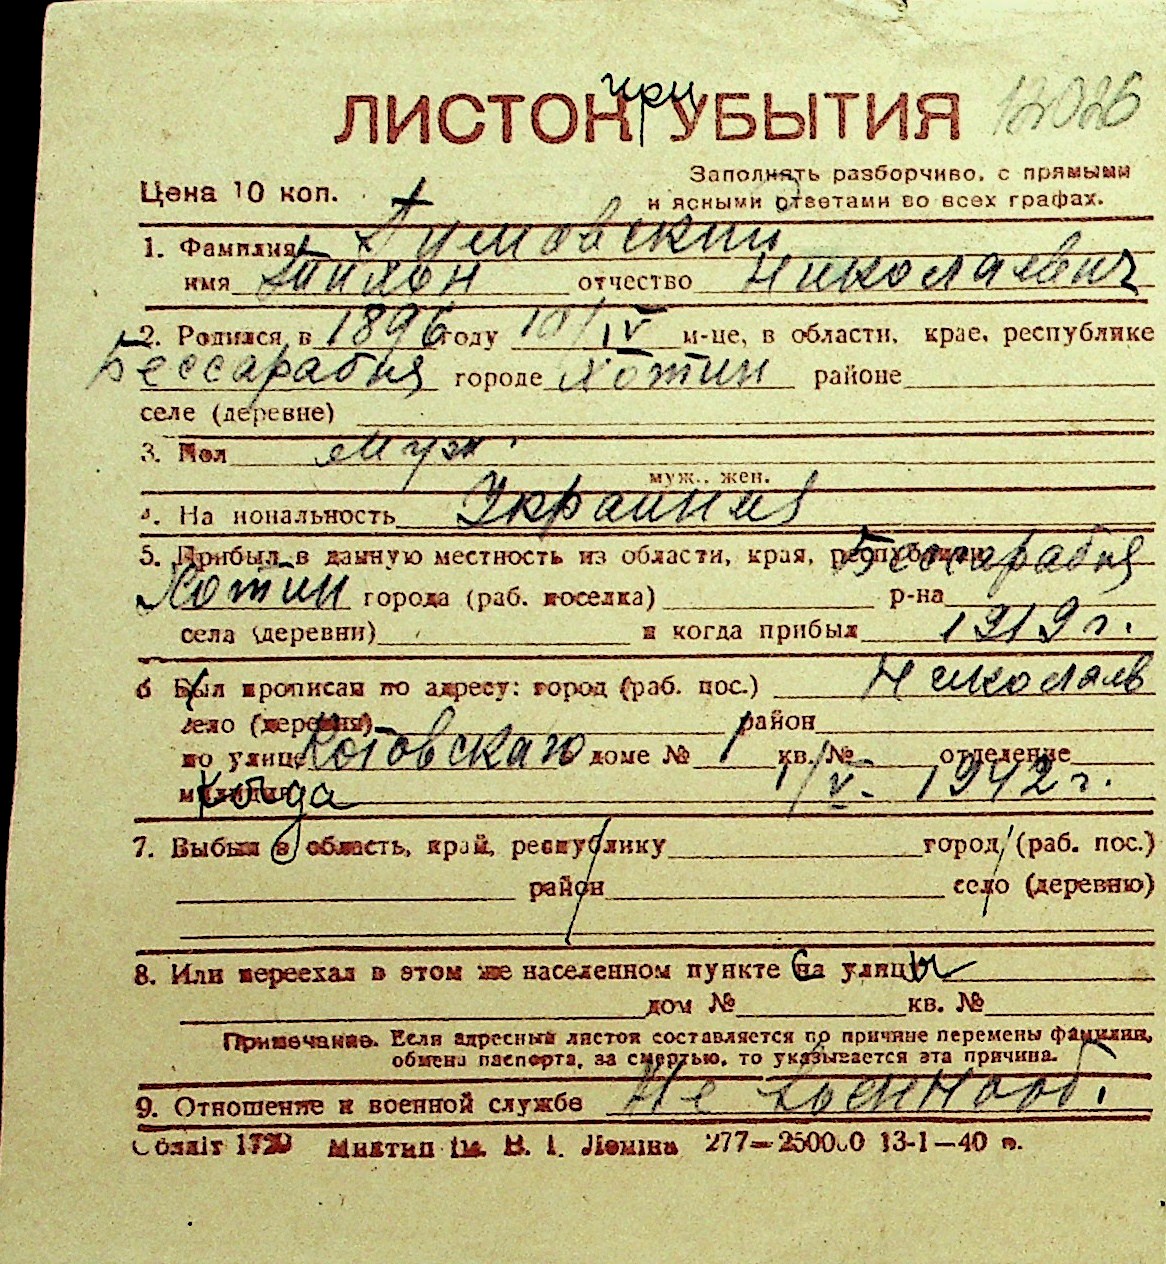 при
ЛИСТОК УБЫТИЯ 12026
Цена 10 коп.
Заполнять разборчиво, с прямыми
и ясными ответами во всех графах.
1. Фамилия Димовский
имя отчество Николаевич
2. Родился в 1896 году 10/IV м-це, в области, крае, республике
Бессарабия городе Хотин районе
селе (деревне)
3. Пол муж.
муж., жен.
4. На иональность Украиния
5. Прибыл в данную местность из области, края, республики Бессарабия
Хотин города (раб. поселка) р-на
села (деревни) и когда прибыл 1919 г.
6 Был прописан по адресу: город (раб. пос.) Николаев
село (деревня) район
по улице Котовскаго доме № 1 кв. № отделение
милиции Когда 1/V. 1942 г.
7. Выбыл в область, край, республику город, (раб. пос.)
район село (деревню)
8. Или переехал в этом же населенном пункте на улицы
дом № кв. №
Примечание. Если адресный листок составляется по причине перемены фамилии,
обмена паспорта, за смертью, то указывается эта причина.
9. Отношение к военной службе Не военнооб.
Облліт 1720 Миктип ім. В. І. Леніна 277—250000 13-1—40 р.